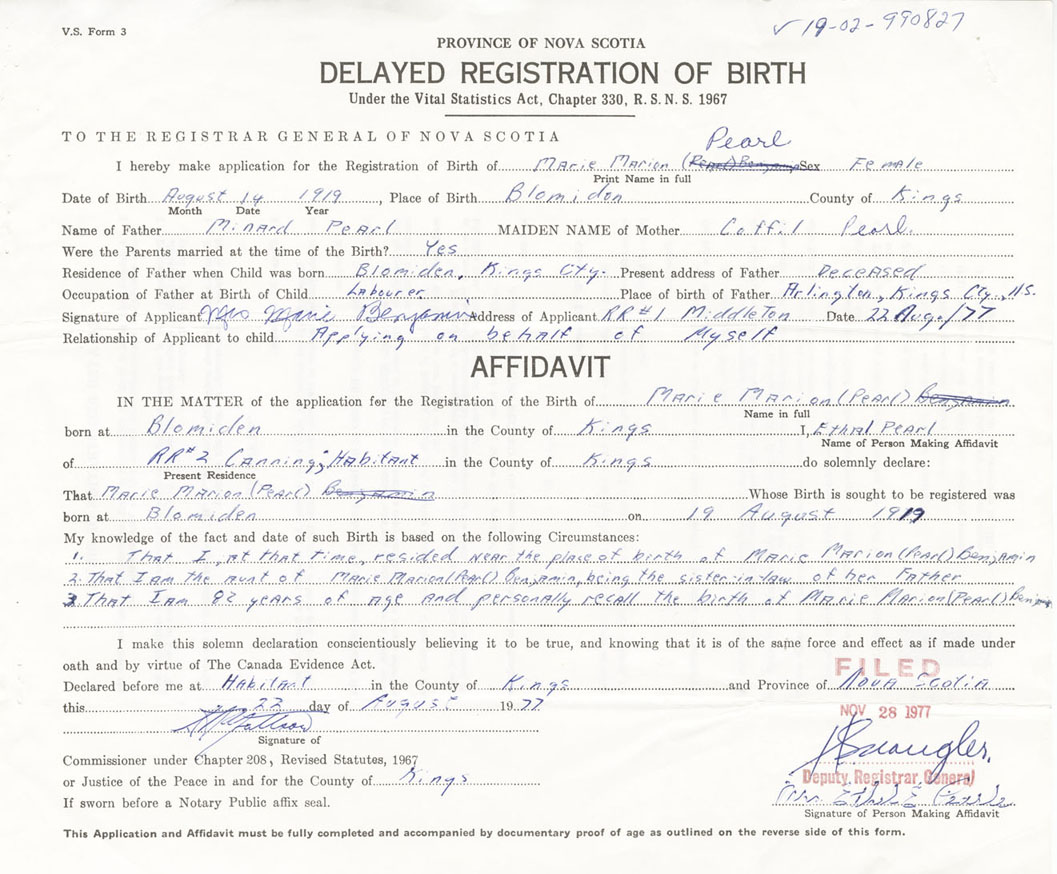 V.S. Form 3
✓ 19-02-990827
PROVINCE OF NOVA SCOTIA
DELAYED REGISTRATION OF BIRTH
Under the Vital Statistics Act, Chapter 330, R. S. N. S. 1967
TO THE REGISTRAR GENERAL OF NOVA SCOTIA
Pearl
I hereby make application for the Registration of Birth of Marie Marion (Pearl) Benjamin Sex Female
Print Name in full
Date of Birth August 14 1919, Place of Birth Blomiden County of Kings
Month Date Year
Name of Father Minard Pearl MAIDEN NAME of Mother Coffil Pearl.
Were the Parents married at the time of the Birth? Yes
Residence of Father when Child was born Blomiden, Kings Cty. Present address of Father Deceased
Occupation of Father at Birth of Child Labourer Place of birth of Father Arlington, Kings Cty., NS.
Signature of Applicant Mrs Marie Benjamin Address of Applicant RR #1 Middleton Date 22 Aug./77
Relationship of Applicant to child Applying on behalf of Myself
AFFIDAVIT
IN THE MATTER of the application for the Registration of the Birth of Marie Marion (Pearl) Benjamin
Name in full
born at Blomiden in the County of Kings I, Ethal Pearl
Name of Person Making Affidavit
of RR#2 Canning, Habitant in the County of Kings do solemnly declare:
Present Residence
That Marie Marion (Pearl) Benjamin Whose Birth is sought to be registered was
born at Blomiden on 19 August 1919
My knowledge of the fact and date of such Birth is based on the following Circumstances:
1. That I, at that time, resided near the place of birth of Marie Marion (Pearl) Benjamin
2. That I am the aunt of Marie Marion (Pearl) Benjamin, being the sister-in-law of her Father
3. That I am 82 years of age and personally recall the birth of Marie Marion (Pearl) Benjamin
I make this solemn declaration conscientiously believing it to be true, and knowing that it is of the same force and effect as if made under
oath and by virtue of The Canada Evidence Act.
FILED
Declared before me at Habitant in the County of Kings and Province of Nova Scotia
this 22 day of August 1977
NOV 28 1977
Signature of
Commissioner under Chapter 208, Revised Statutes, 1967
or Justice of the Peace in and for the County of Kings
Deputy Registrar General
If sworn before a Notary Public affix seal.
Signature of Person Making Affidavit
This Application and Affidavit must be fully completed and accompanied by documentary proof of age as outlined on the reverse side of this form.